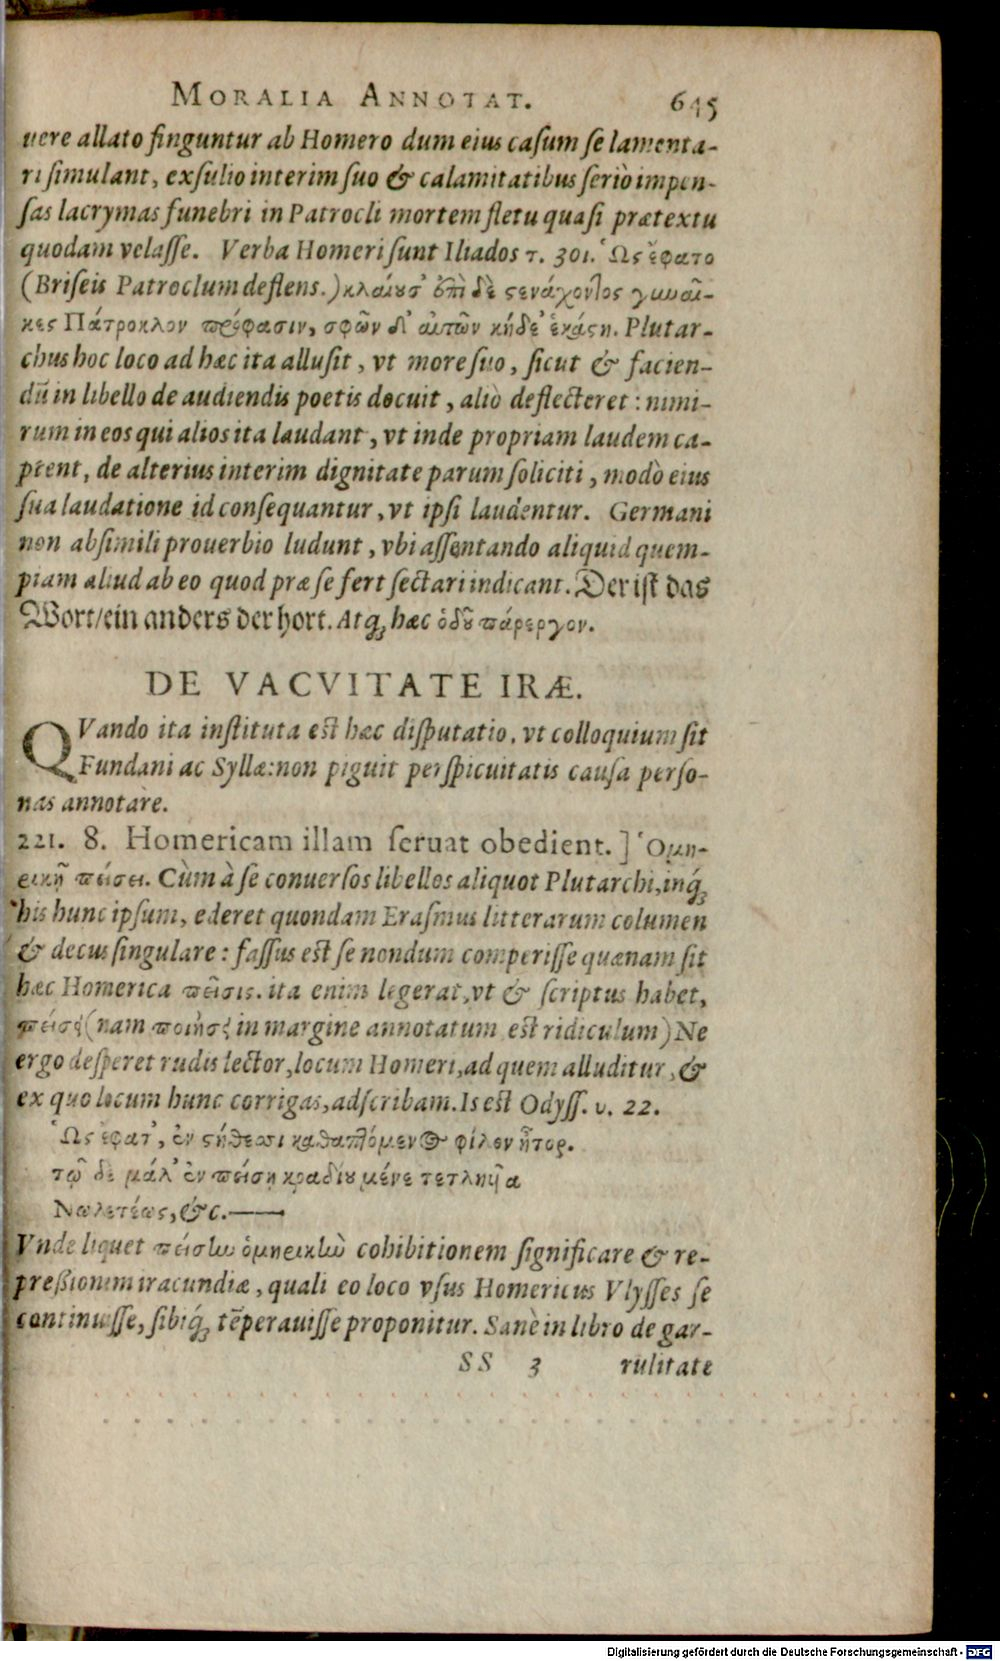 MORALIA ANNOTAT. 645
vere allato finguntur ab Homero dum eius casum se lamenta-
ri simulant, exsulio interim suo & calamitatibus seriò impen-
sas lacrymas funebri in Patrocli mortem fletu quasi prætextu
quodam velasse. Verba Homeri sunt Iliados τ. 301. Ὣς ἔφατο
(Briseis Patroclum deflens.) κλαίουσ' ἐπὶ δὲ στενάχοντος γυναῖ-
κες Πάτροκλον πρόφασιν, σφῶν δ' αὐτῶν κήδε' ἑκάστη. Plutar-
chus hoc loco ad hæc ita allusit, vt more suo, sicut & facien-
dū in libello de audiendis poetis docuit, aliò deflecteret: nimi-
rum in eos qui alios ita laudant, vt inde propriam laudem ca-
ptent, de alterius interim dignitate parum soliciti, modò eius
sua laudatione id consequantur, vt ipsi laudentur. Germani
non absimili prouerbio ludunt, vbi assentando aliquid quem-
piam aliud ab eo quod præ se fert sectari indicant. Der ist das
Wort/ein anders der hort. Atq; hæc ὁδοῦ πάρεργον.
DE VACVITATE IRÆ.
QVando ita instituta est hæc disputatio, vt colloquium sit
Fundani ac Syllæ: non piguit perspicuitatis causa perso-
nas annotare.
221. 8. Homericam illam seruat obedient.] Ὁμη-
ρικῇ πείσει. Cùm à se conuersos libellos aliquot Plutarchi, inq́;
his hunc ipsum, ederet quondam Erasmus litterarum columen
& decus singulare: fassus est se nondum comperisse quænam sit
hæc Homerica πεῖσις. ita enim legerat, vt & scriptus habet,
πείσει (nam ποιήσει in margine annotatum est ridiculum) Ne
ergo desperet rudis lector, locum Homeri, ad quem alluditur, &
ex quo locum hunc corrigas, adscribam. Is est Odyss. υ. 22.
Ὣς ἔφατ', ἐν στήθεσσι καθαπτόμενος φίλον ἦτορ.
τῷ δὲ μάλ' ἐν πείσῃ κραδίη μένε τετληυῖα
Νωλεμέως, &c.——
Vnde liquet πείσην ὁμηρικὴν cohibitionem significare & re-
pressionem iracundiæ, quali eo loco vsus Homericus Vlysses se
continuisse, sibiq́; tēperauisse proponitur. Sanè in libro de gar-
SS 3 rulitate
Digitalisierung gefördert durch die Deutsche Forschungsgemeinschaft - DFG